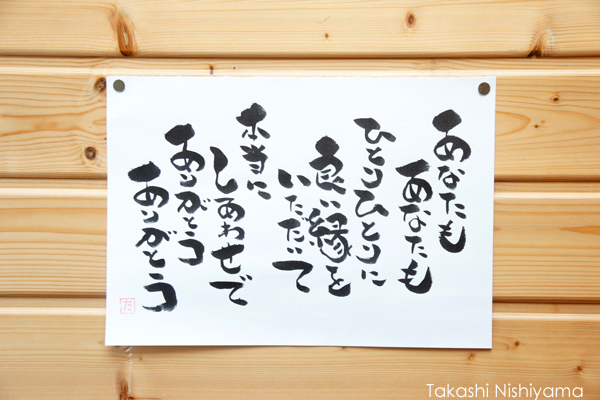 あなたも
あなたも
ひとりひとりに
良い縁を
いただいて
本当に
しあわせで
ありがとう
ありがとう
た
Takashi Nishiyama